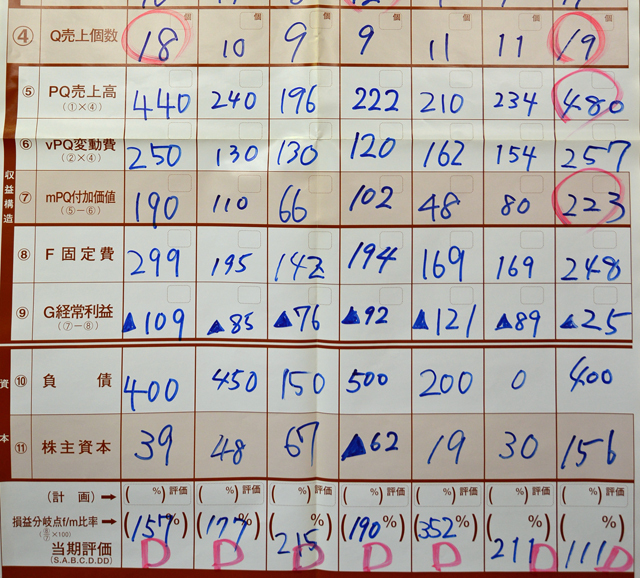 個 個 個 個 個 個 個
④ Q売上個数 18 10 9 9 11 11 19
⑤ PQ売上高 (①×④) 440 240 196 222 210 234 480
⑥ vPQ変動費 (②×④) 250 130 130 120 162 154 257
収益構造
⑦ mPQ付加価値 (⑤−⑥) 190 110 66 102 48 80 223
⑧ F 固定費 299 195 142 194 169 169 248
⑨ G経常利益 (⑦−⑧) ▲109 ▲85 ▲76 ▲92 ▲121 ▲89 ▲25
資本
⑩ 負債 400 450 150 500 200 0 400
⑪ 株主資本 39 48 67 ▲62 19 30 156
(計画)→ ( %)評価 ( %)評価 ( %)評価 ( %)評価 ( %)評価 ( %)評価 ( %)評価
損益分岐点f/m比率→ (157%) (177%) (215%) (190%) (352%) (211%) (111%)
当期評価 D D D D D D D
(S.A.B.C.D.DD)